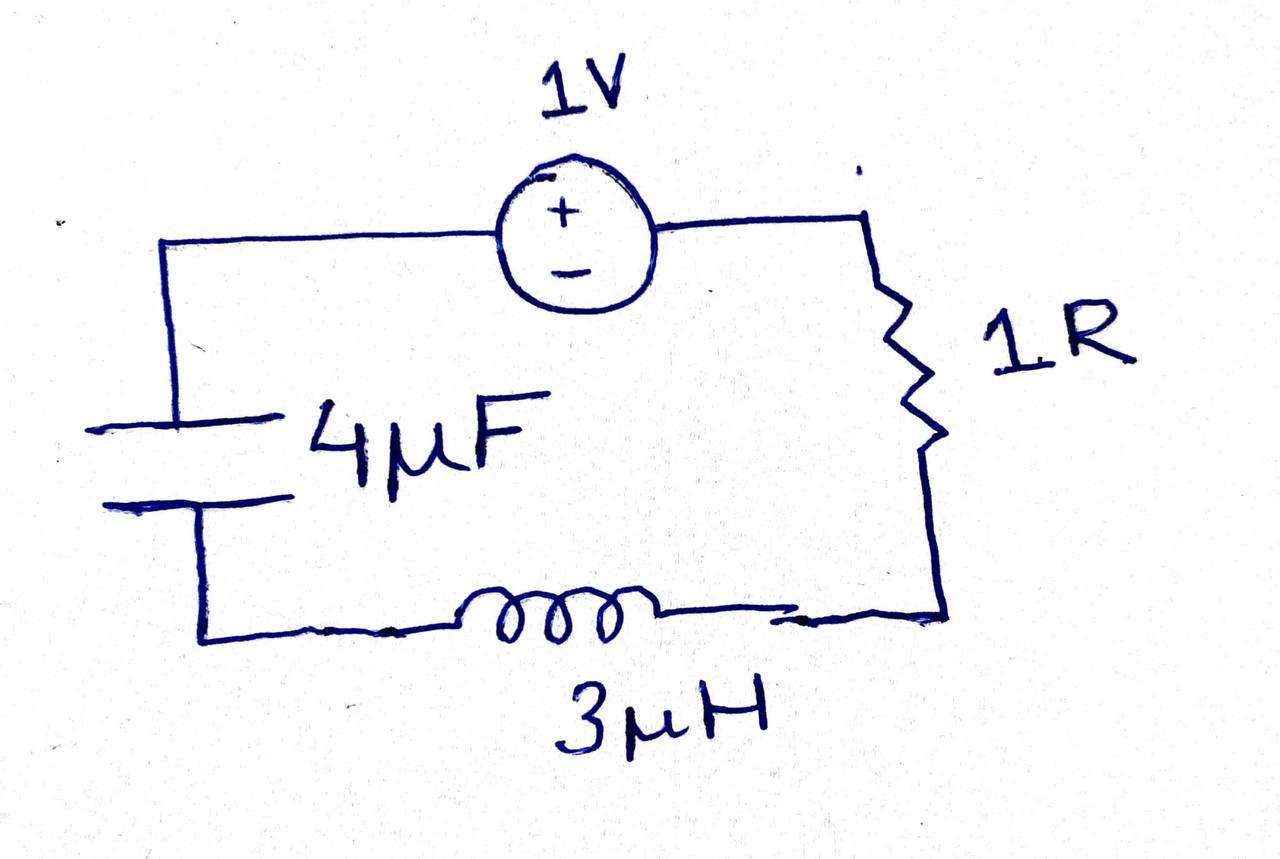 1V
+
−
1R
4µF
3µH